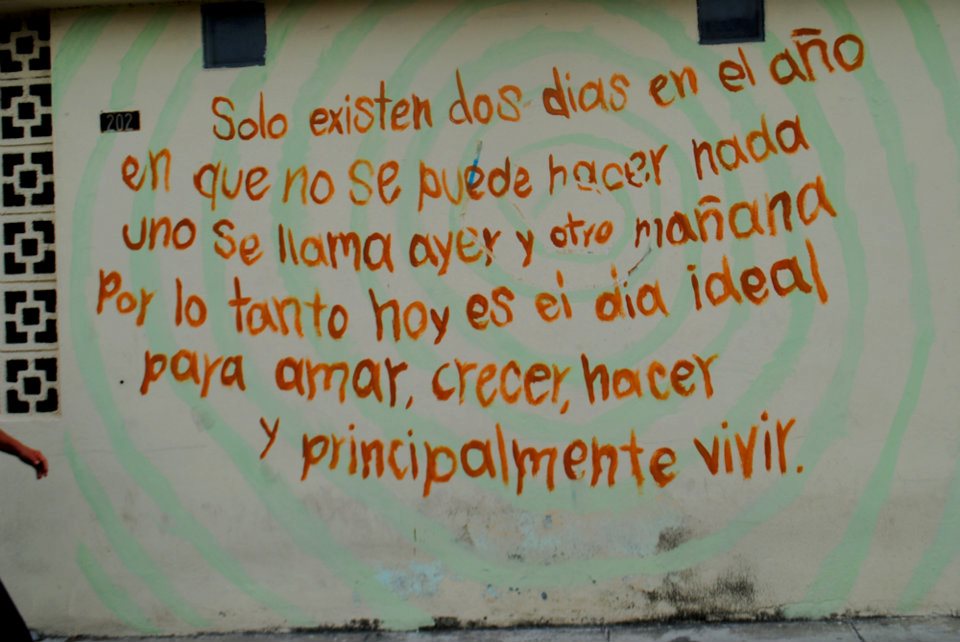 202
Solo existen dos dias en el año
en que no se puede hacer nada
uno se llama ayer y otro mañana
Por lo tanto hoy es el dia ideal
para amar, crecer, hacer
y principalmente vivir.